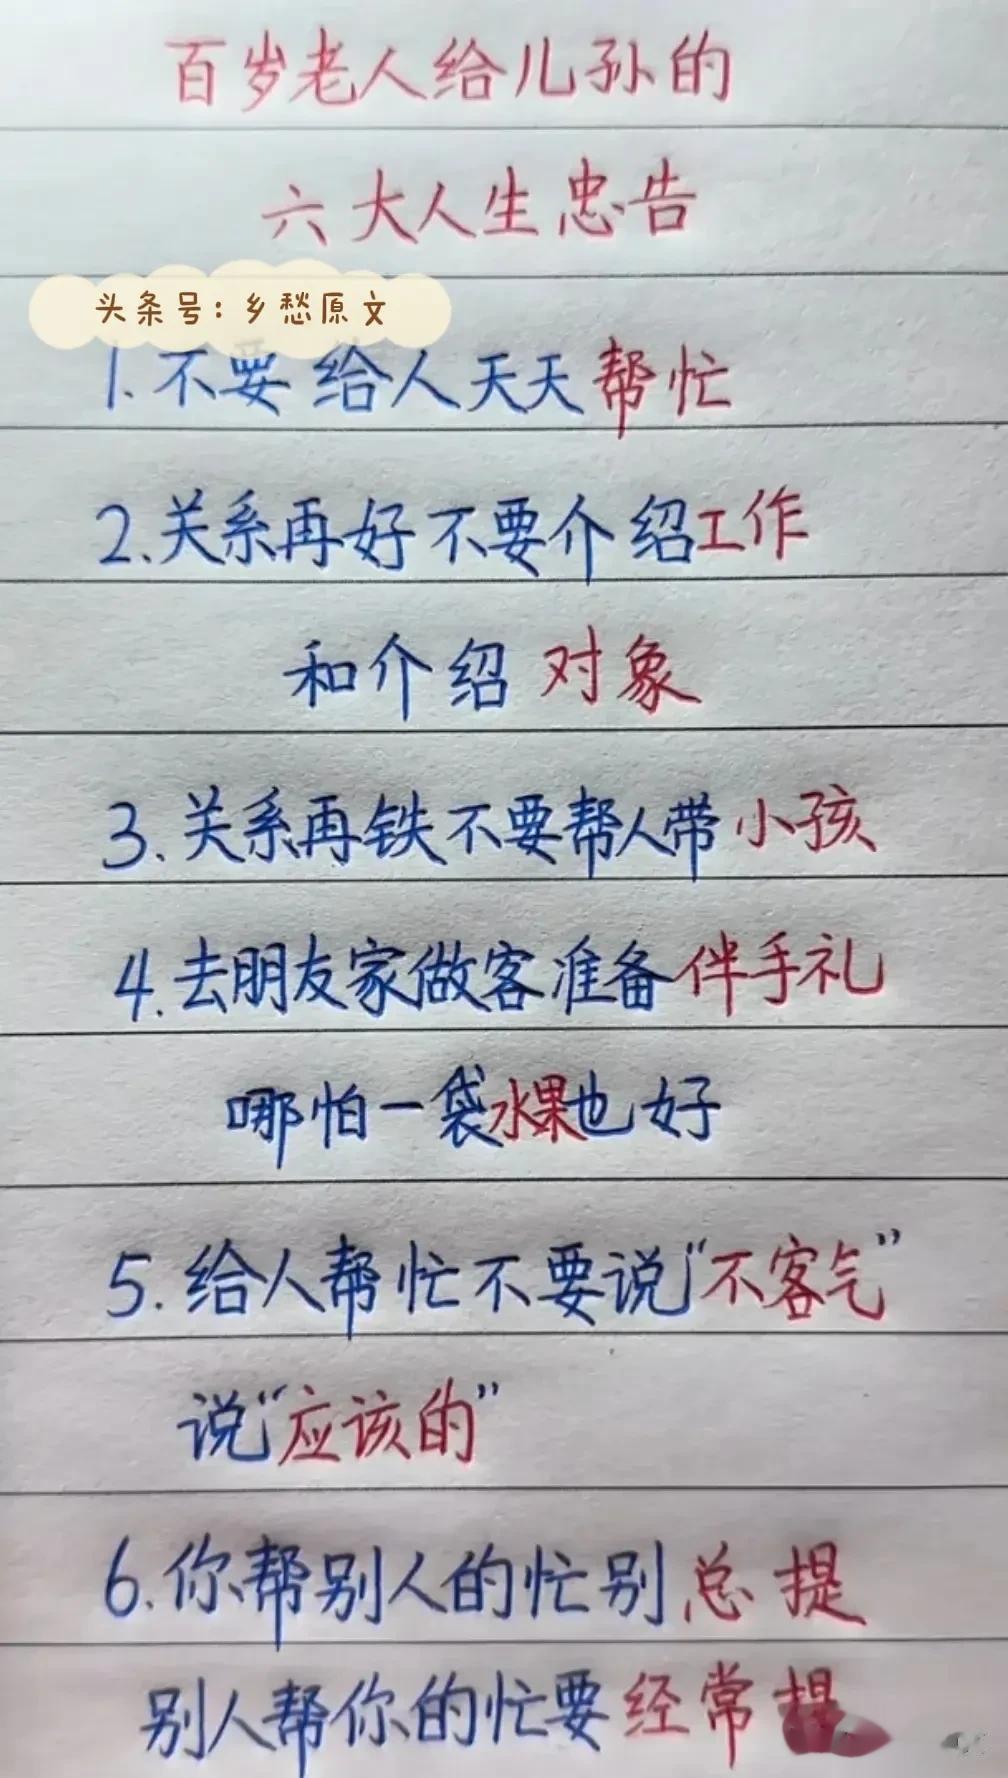 百岁老人给儿孙的
六大人生忠告
头条号：乡愁原文
1.不要给人天天帮忙
2.关系再好不要介绍工作
和介绍对象
3.关系再铁不要帮人带小孩
4.去朋友家做客准备伴手礼
哪怕一袋水果也好
5.给人帮忙不要说“不客气”
说“应该的”
6.你帮别人的忙别总提
别人帮你的忙要经常提